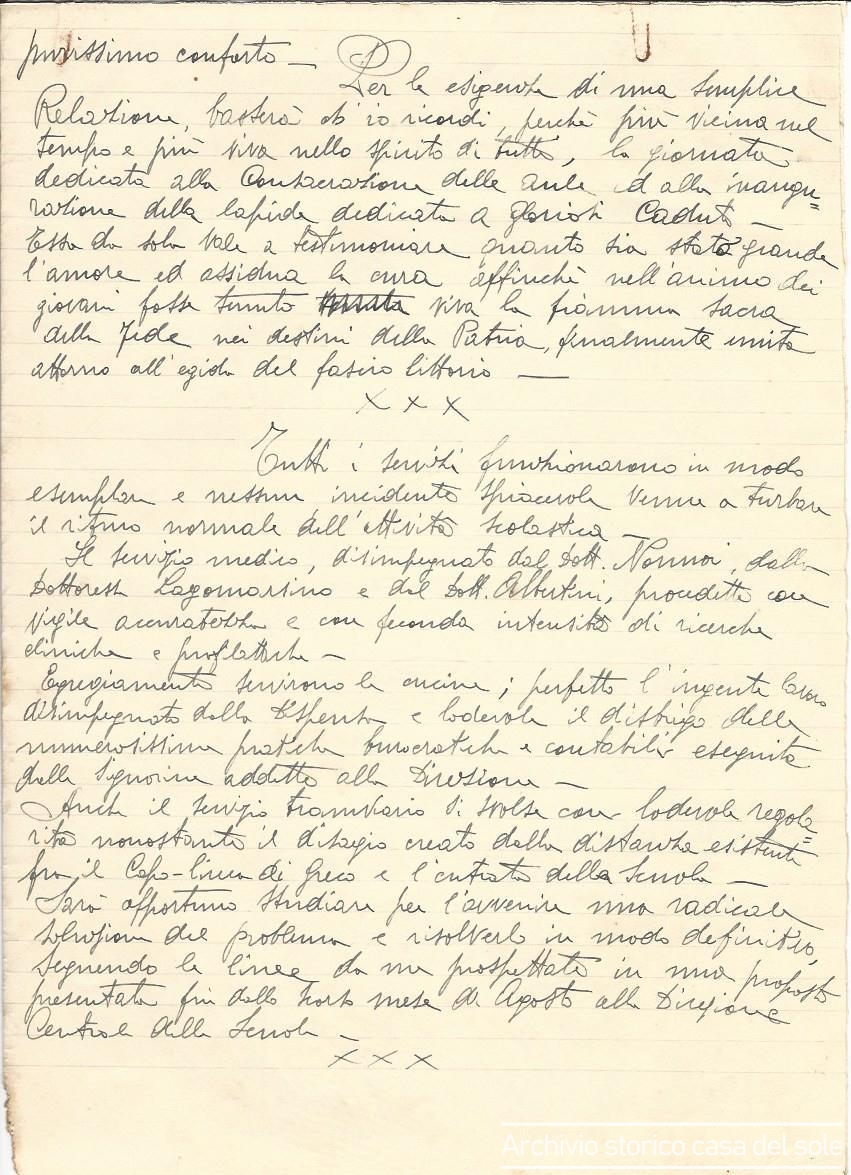 purissimo conforto –
Per le esigenze di una semplice
Relazione, basterà ch'io ricordi, perchè più vicina nel
tempo e più viva nello spirito di tutti, la giornata
dedicata alla Consacrazione delle aule ed alla inaugu=
razione della lapide dedicata a gloriosi Caduti –
Essa da sola vale a testimoniare quanto sia stato grande
l'amore ed assidua la cura affinchè nell'animo dei
giovani fosse tenuta viva la fiamma sacra
della Fede nei destini della Patria, finalmente unita
attorno all'egida del fascio littorio –
x x x
Tutti i servizi funzionarono in modo
esemplare e nessun incidente spiacevole venne a turbare
il ritmo normale dell'attività scolastica –
Il servizio medico, disimpegnato dal Dott. dalla
Dottoressa Lagomarsino e dal Dott. Albertini, procedette con
vigile accuratezza e con feconda intensità di ricerche
cliniche e profilattiche –
Egregiamente servirono le cucine; perfetto l'ingente lavoro
disimpegnato dalla Dispensa e lodevole il disbrigo delle
numerosissime pratiche burocratiche e contabili eseguite
dalle Signorine addette alla Direzione –
Anche il servizio tramviario si svolse con lodevole regola=
rità nonostante il disagio creato dalla distanza esistente
fra il Capo-linea di Greco e l'entrata della Scuola –
Sarà opportuno studiare per l'avvenire una radicale
soluzione del problema e risolverlo in modo definitivo,
seguendo le linee da me prospettate in una proposta
presentata fin dallo scorso mese di Agosto alla Direzione
Centrale della Scuola –
x x x
Archivio storico casa del sole